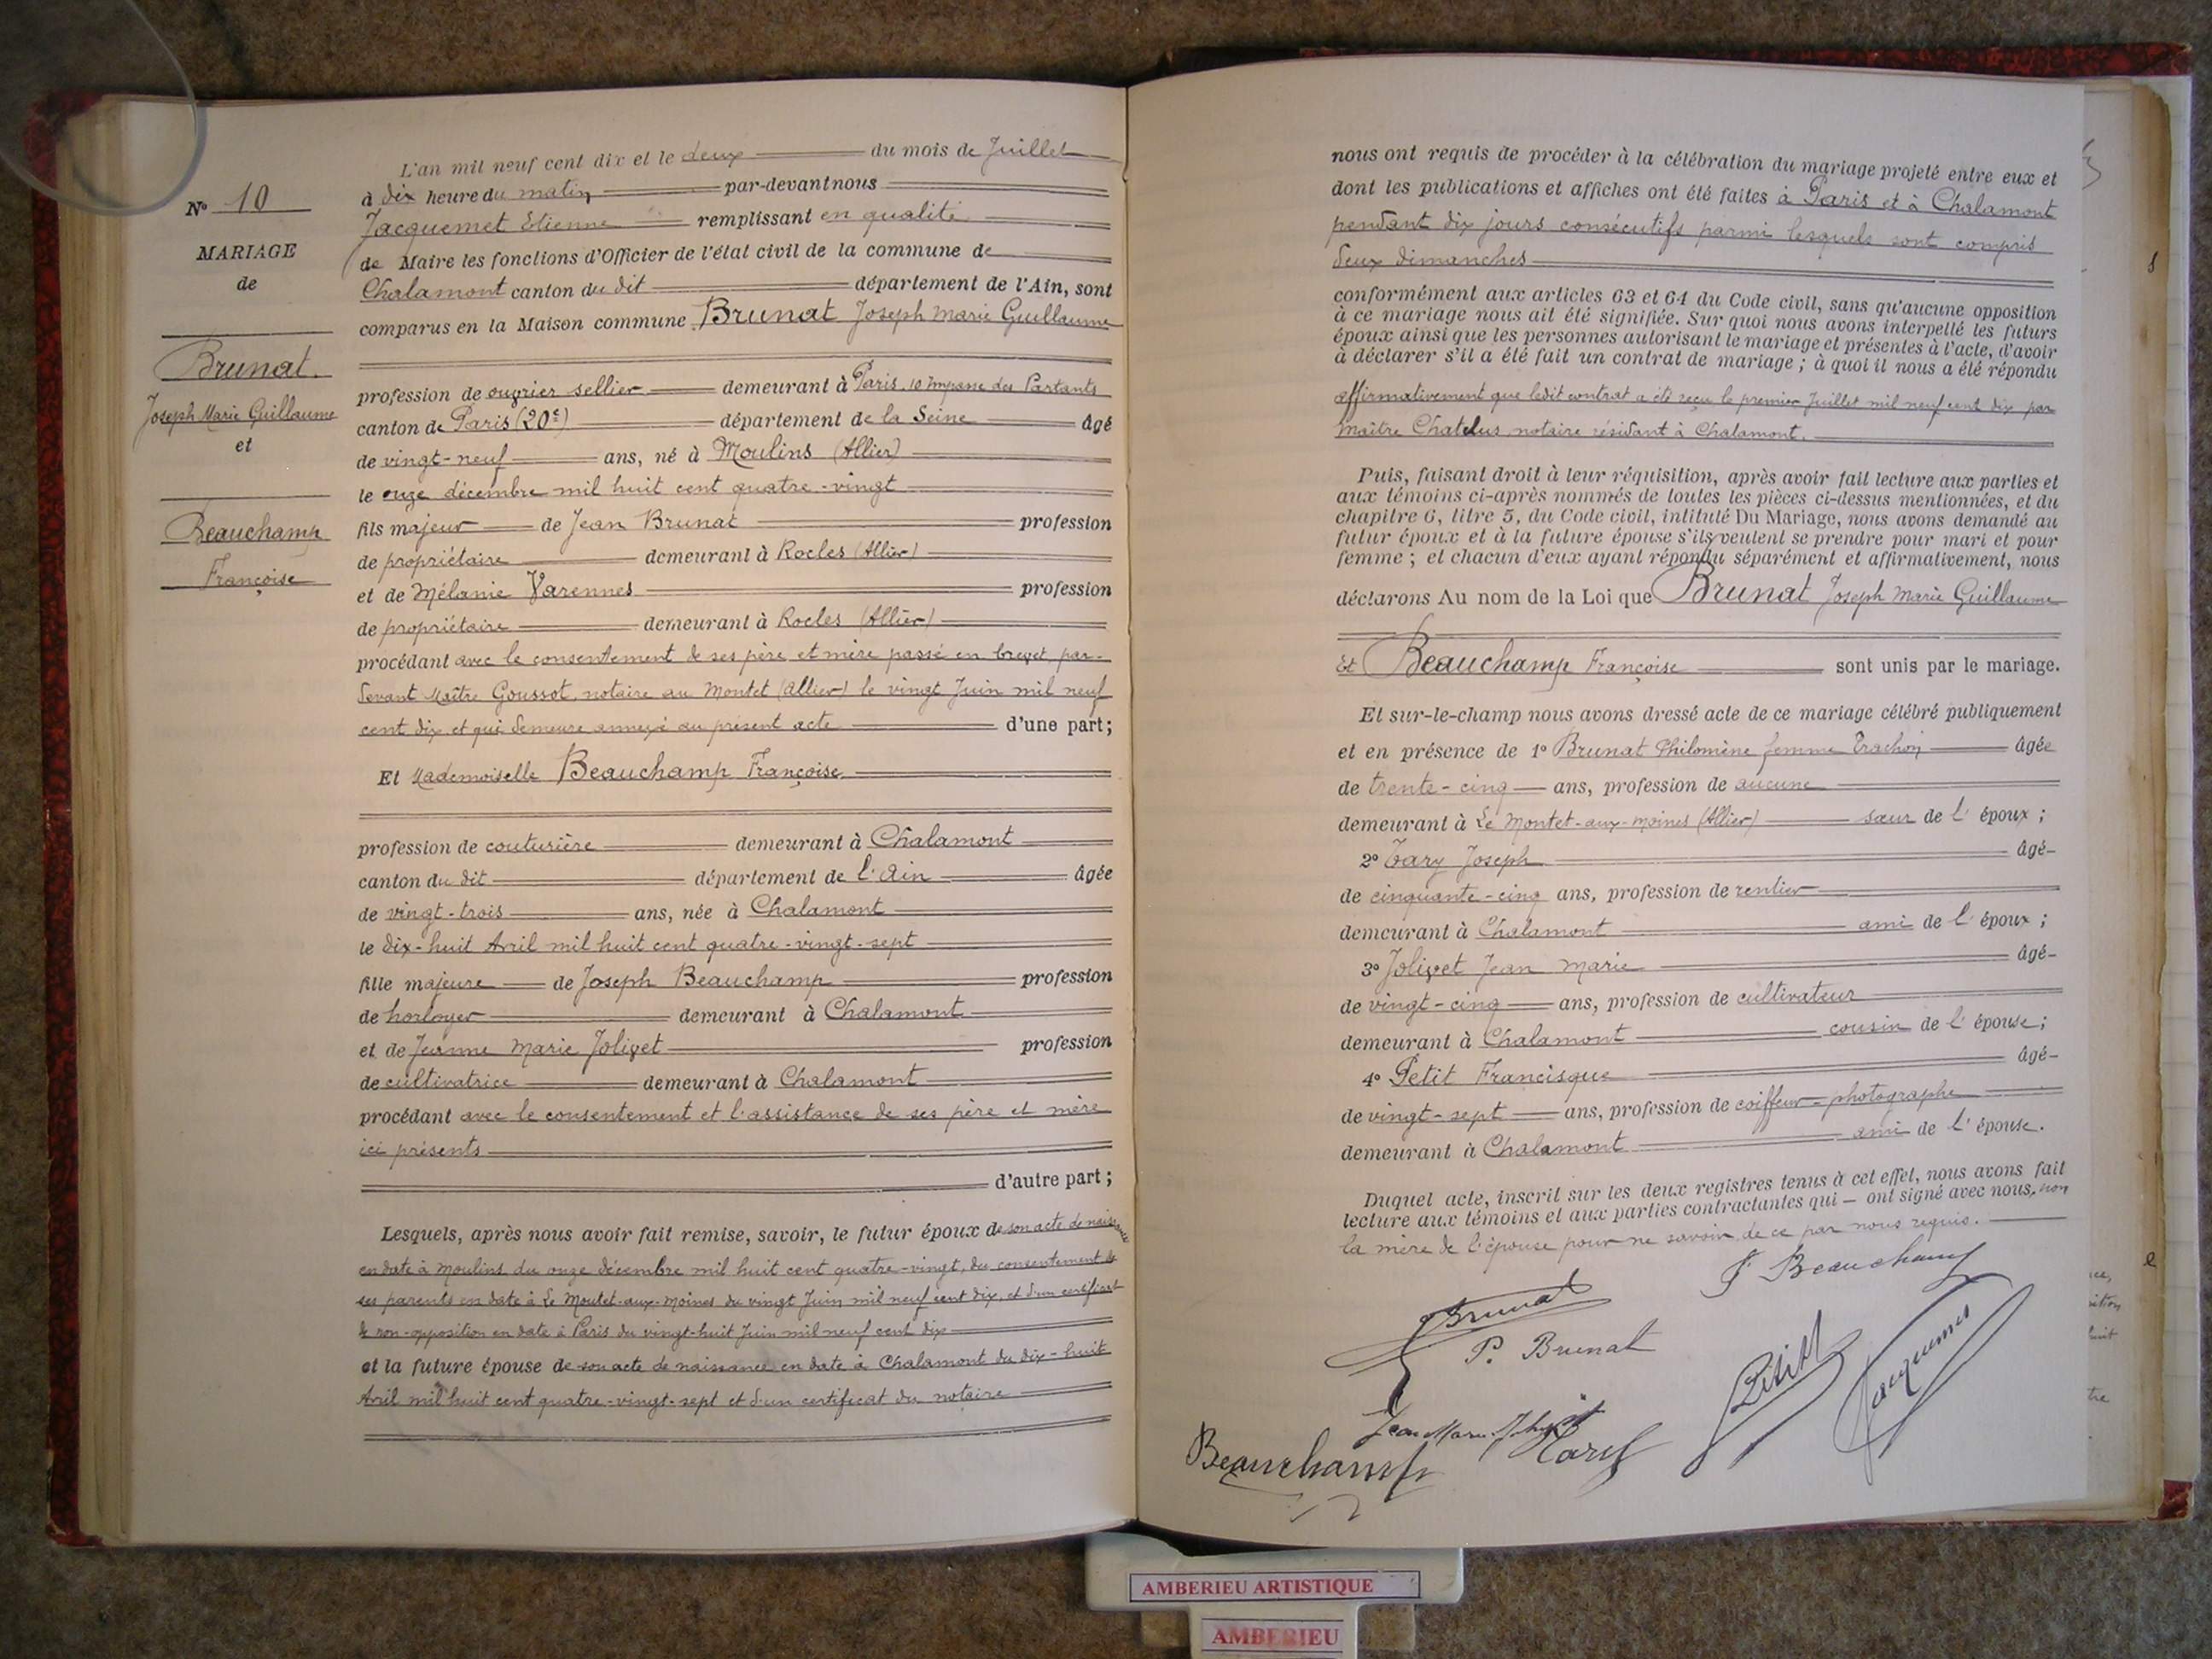 N° 10
MARIAGE
de
Brunat.
Joseph Marie Guillaume
et
Beauchamp
Françoise
L'an mil neuf cent dix et le deux du mois de Juillet
à dix heure du matin, par-devant nous
Jacquemet Etienne remplissant en qualité
de Maire les fonctions d'Officier de l'état civil de la commune de
Chalamont canton du dit département de l'Ain, sont
comparus en la Maison commune Brunat Joseph Marie Guillaume
profession de ouvrier sellier demeurant à Paris. 10 Impasse des Partants
canton de Paris (20e) département de la Seine âgé
de vingt-neuf ans, né à Moulins (Allier)
le onze décembre mil huit cent quatre-vingt
fils majeur de Jean Brunat profession
de propriétaire demeurant à Rocles (Allier)
et de Mélanie Varennes profession
de propriétaire demeurant à Rocles (Allier)
procédant avec le consentement de ses père et mère passé en brevet par-
devant Maître Goussot, notaire au Montet (Allier) le vingt Juin mil neuf
cent dix et qui demeure annexé au présent acte d'une part;
Et Mademoiselle Beauchamp Françoise
profession de couturière demeurant à Chalamont
canton du dit département de l'Ain âgée
de vingt-trois ans, née à Chalamont
le dix-huit Avril mil huit cent quatre-vingt-sept
fille majeure de Joseph Beauchamp profession
de horloger demeurant à Chalamont
et de Jeanne Marie Jolivet profession
de cultivatrice demeurant à Chalamont
procédant avec le consentement et l'assistance de ses père et mère
ici présents
d'autre part;
Lesquels, après nous avoir fait remise, savoir, le futur époux de son acte de naissance
en date à Moulins du onze décembre mil huit cent quatre-vingt, du consentement de
ses parents en date à Le Montet-aux-Moines du vingt Juin mil neuf cent dix, et d'un certificat
de non-opposition en date à Paris du vingt-huit Juin mil neuf cent dix
et la future épouse de son acte de naissance en date à Chalamont du dix-huit
Avril mil huit cent quatre-vingt-sept et d'un certificat du notaire
nous ont requis de procéder à la célébration du mariage projeté entre eux et
dont les publications et affiches ont été faites à Paris et à Chalamont
pendant dix jours consécutifs parmi lesquels sont compris
deux dimanches
conformément aux articles 63 et 64 du Code civil, sans qu'aucune opposition
à ce mariage nous ait été signifiée. Sur quoi nous avons interpellé les futurs
époux ainsi que les personnes autorisant le mariage et présentes à l'acte, d'avoir
à déclarer s'il a été fait un contrat de mariage; à quoi il nous a été répondu
affirmativement que ledit contrat a été reçu le premier Juillet mil neuf cent dix par
Maître Chatelus notaire résidant à Chalamont.
Puis, faisant droit à leur réquisition, après avoir fait lecture aux parties et
aux témoins ci-après nommés de toutes les pièces ci-dessus mentionnées, et du
chapitre 6, titre 5, du Code civil, intitulé Du Mariage, nous avons demandé au
futur époux et à la future épouse s'ils veulent se prendre pour mari et pour
femme; et chacun d'eux ayant répondu séparément et affirmativement, nous
déclarons Au nom de la Loi que Brunat Joseph Marie Guillaume
Et Beauchamp Françoise sont unis par le mariage.
Et sur-le-champ nous avons dressé acte de ce mariage célébré publiquement
et en présence de 1° Brunat Philomène femme Trachon âgée
de trente-cinq ans, profession de aucune
demeurant à Le Montet-aux-Moines (Allier) sœur de l'époux;
2° Tary Joseph âgé-
de cinquante-cinq ans, profession de rentier
demeurant à Chalamont ami de l'époux;
3° Jolivet Jean Marie âgé-
de vingt-cinq ans, profession de cultivateur
demeurant à Chalamont cousin de l'épouse;
4° Petit Francisque âgé-
de vingt-sept ans, profession de coiffeur-photographe
demeurant à Chalamont ami de l'épouse.
Duquel acte, inscrit sur les deux registres tenus à cet effet, nous avons fait
lecture aux témoins et aux parties contractantes qui — ont signé avec nous, non
la mère de l'épouse pour ne savoir de ce par nous requis.
F Beauchamp
Brunat
P. Brunat
Petit
Jacquemet
Jean Marie Jolivet
Beauchamp
AMBERIEU ARTISTIQUE
AMBERIEU